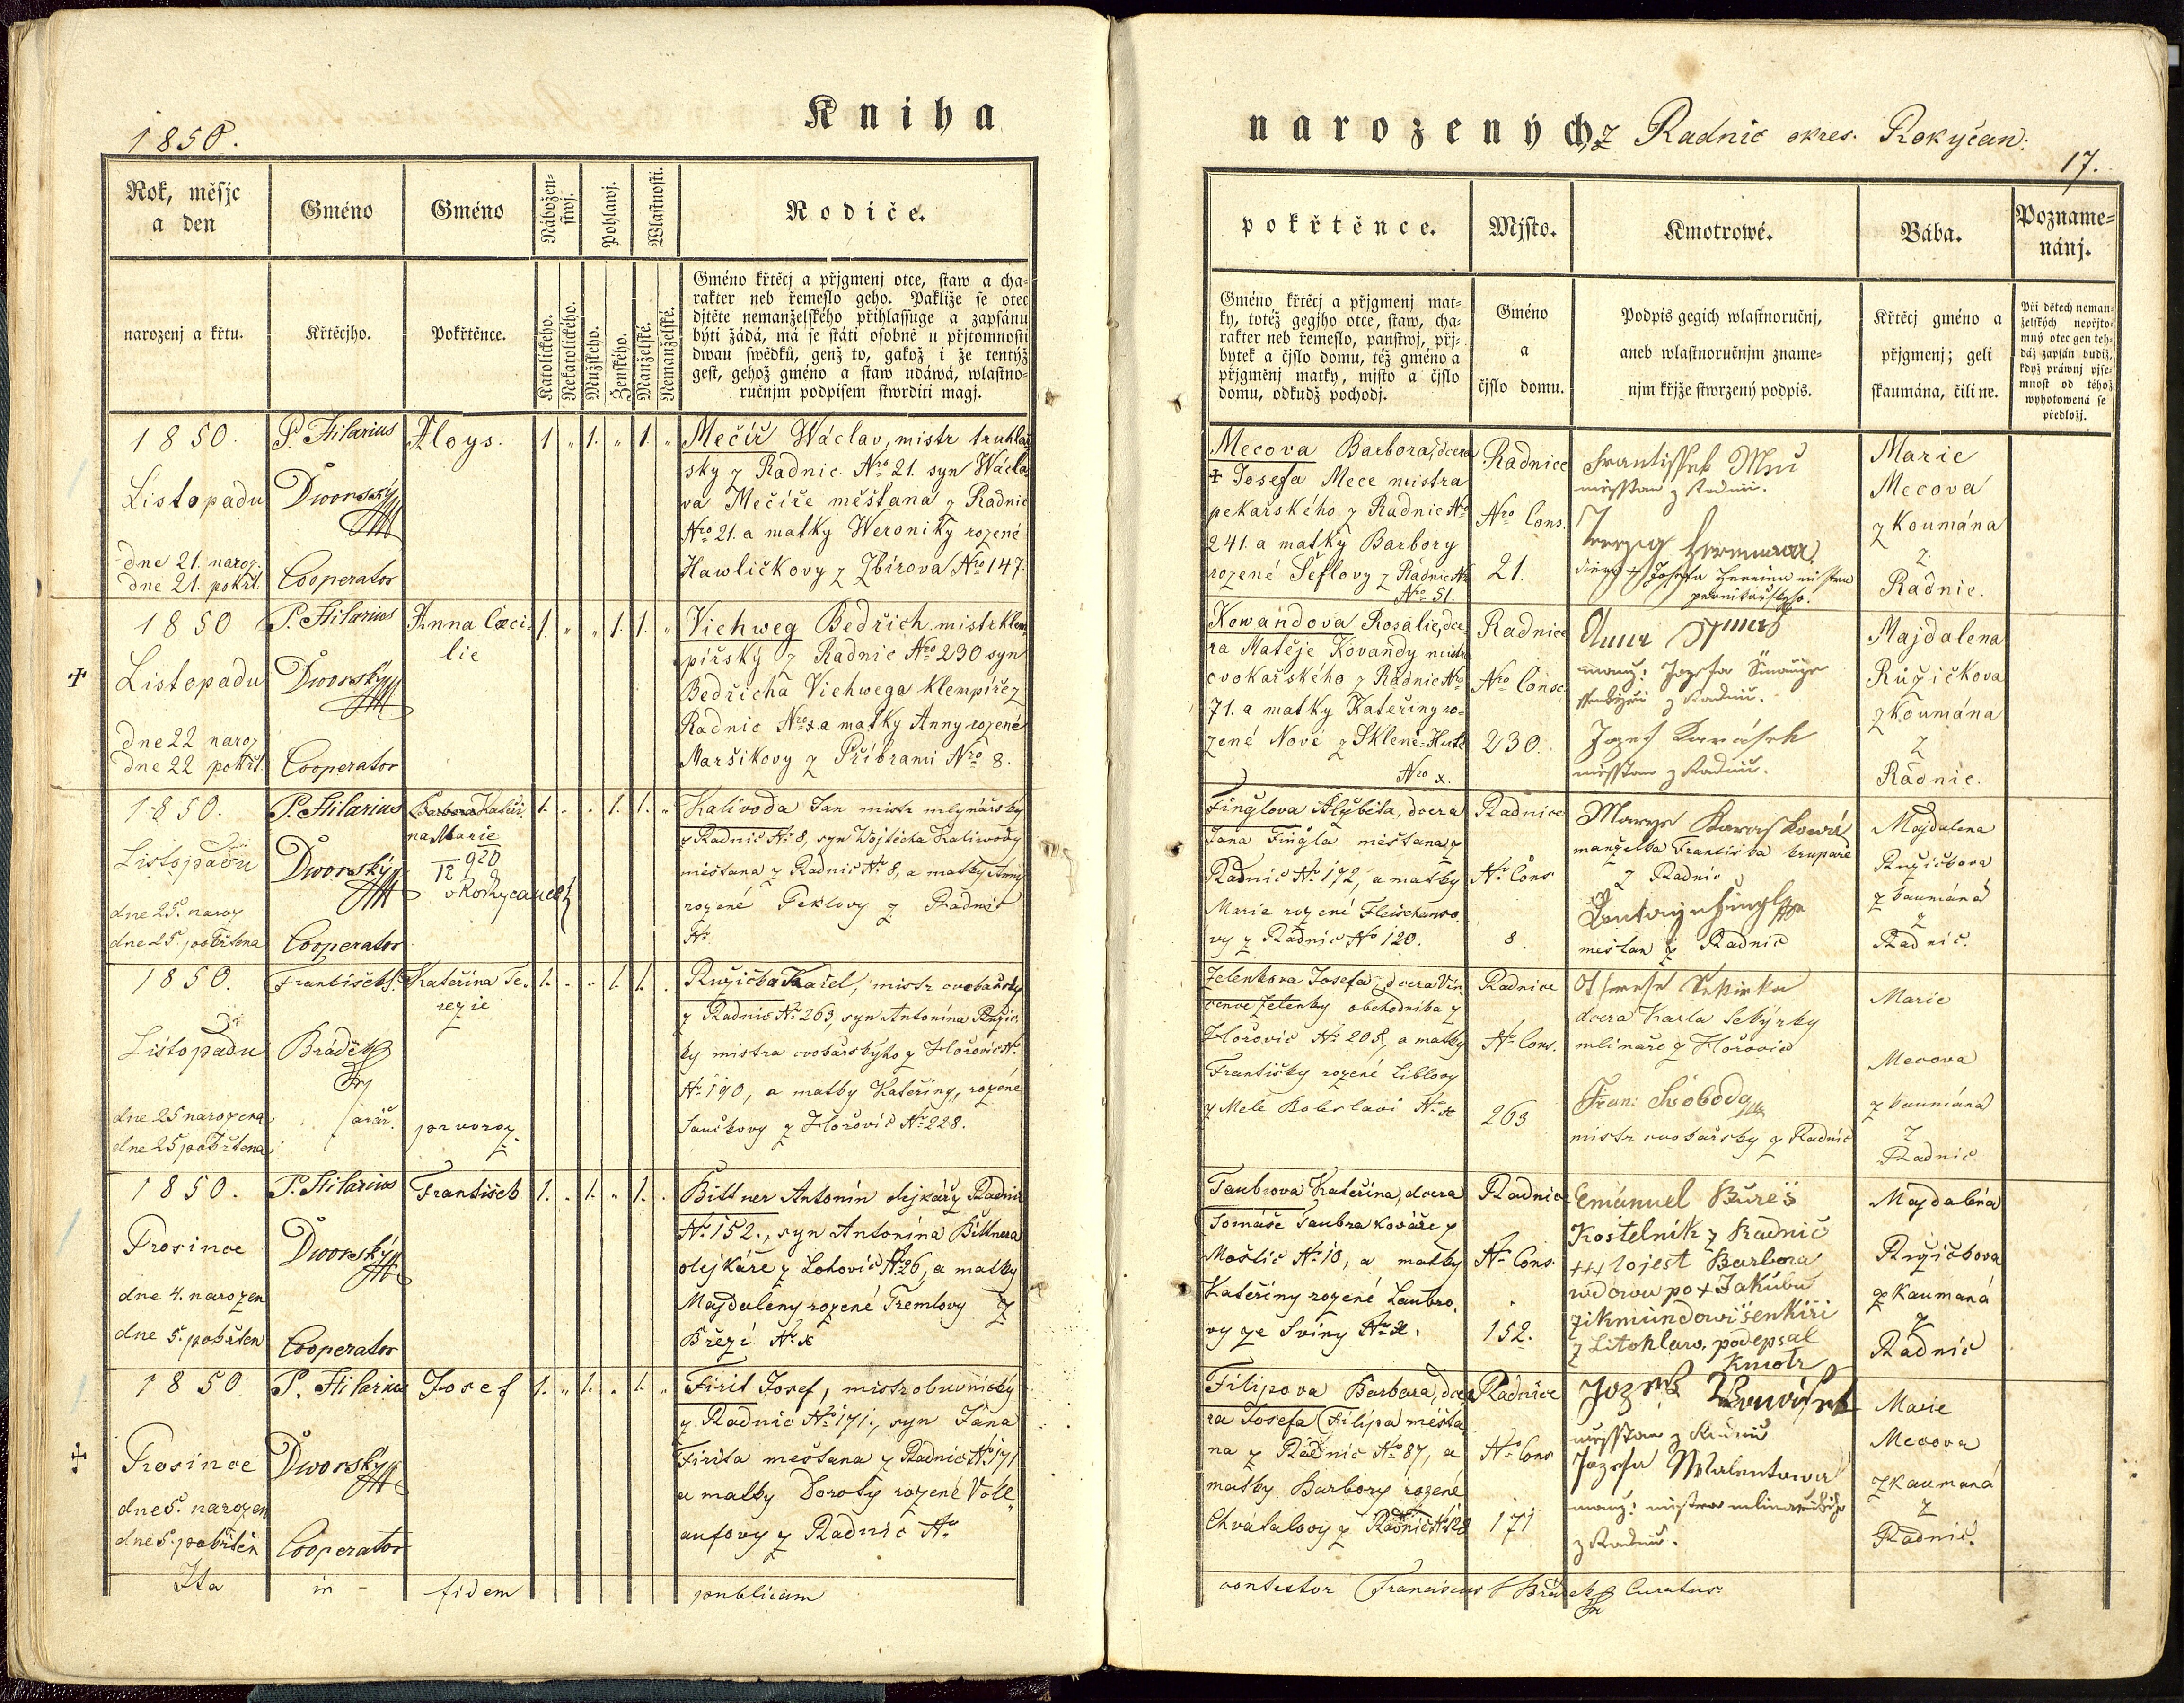 1850.
Kniha
Rok, měsjc
a den
Gméno
Gméno
Nábožen-
stwj.
Pohlawj.
Wlastnosti.
Rodiče.
narozenj a křtu.
Křtěcjho.
Pokřtěnce.
Katolického.
Nekatolického.
Mužského.
Ženského.
Manželské.
Nemanželské.
Gméno křtěcj a přjgmenj otce, staw a cha-
rakter neb řemeslo geho. Pakliže se otec
djtěte nemanželského přihlassuge a zapsánu
býti žádá, má se státi osobně u přjtomnosti
dwau swědků, genž to, gakož i že tentýž
gest, gehož gméno a staw udáwá, wlastno-
ručnjm podpisem stwrditi magj.
1850.
Listopadu
dne 21. naroz.
dne 21. pokřt.
P. Hilarius
Dworský
Cooperator
Aloys.
1 " 1. " 1. "
Mečíř Wáclav, mistr truhlář
ský z Radnic Nro 21. syn Wácla
va Mečíře měšťana z Radnic
Nro 21. a matky Weroniky rozené
Hawličkovy z Zbirova Nro 147.
1850
Listopadu
dne 22 naroz
dne 22 pokřt.
P. Hilarius
Dworský
Cooperator
Anna Cæci-
lie
1. " " 1. 1. "
Viehweg Bedřich mistr klem
pířský z Radnic Nro 230 syn
Bedřicha Viehwega klempíře z
Radnic Nro x. a matky Anny rozené
Maršikovy z Příbrami Nro 8.
1850.
Listopadu
dne 25. naroz
dne 25. pokřtena
P. Hilarius
Dworský
Cooperator
Barbora Kateři
na Marie
12 9 20
v Rokycanech
1. " " 1. 1. "
Kalivoda Jan mistr mlynářský
z Radnic No 8, syn Wojtěcha Kaliwody
měšťana z Radnic No 8, a matky Anny
rozené Teklovy z Radnic
No
1850.
Listopadu
dne 25 narozena
dne 25 pokřtena
František
Brádek
farář.
Kateřina Te-
rezie
prvoroz.
1. " " 1. 1. "
Ružička Karel, mistr cvokařský
z Radnic No 263, syn Antonína Ružič
ky mistra cvokařskyho z Hořovic No
No 190, a matky Kateřiny, rozené
Saučkovy z Hořovic No 228.
1850.
Prosince
dne 4. narozen
dne 5. pokřten
P. Hilarius
Dworský
Cooperator
František
1. " 1. " 1. "
Bittner Antonín olejkář z Radnic
No 152., syn Antonína Bittnera
olejkáře z Lohovic No 26, a matky
Majdaleny rozené Tremlovy z
Březí No x
1850
Prosince
dne 5. narozen
dne 5. pokřtěn
P. Hilarius
Dworský
Cooperator
Josef
1. " 1. " 1. "
Firit Josef, mistr obuvnický
z Radnic No 171., syn Jana
Firita mešťana z Radnic No 171
a matky Doroty rozené Voll
aufovy z Radnic No
Ita in fidem publicam
narozených, z Radnic okres. Rokyčan:
17.
pokřtěnce.
Mjsto.
Kmotrowé.
Bába.
Pozname-
nánj.
Gméno křtěcj a přjgmenj mat-
ky, totéž gegjho otce, staw, cha-
rakter neb řemeslo, panstwj, přj-
bytek a čjslo domu, též gméno a
přjgmenj matky, mjsto a čjslo
domu, odkudž pochodj.
Gméno
a
čjslo domu.
Podpis gegich wlastnoručnj,
aneb wlastnoručnjm zname-
njm křjže stwrzený podpis.
Křtěcj gméno a
přjgmenj; geli
skaumána, čili ne.
Při dětech neman-
želských nepřjto-
mný otec gen teh-
dáž zapsán budiž,
když práwnj pjse-
mnost od téhož
wyhotowená se
předložj.
Mecova Barbora, dcera
+ Josefa Mece mistra
pekařského z Radnic No
241. a matky Barbory
rozené Šeflovy z Radnic
Nro 51.
Radnice
Nro Cons.
21.
Frantissek Mec
měsstan z Radnic.
Marie
Mecova
zkoumána
z
Radnic.
Kowandova Rosalie, dce
ra Matěje Kovandy mistra
cvokařského z Radnic No
71. a matky Kateřiny ro-
zené Nové z Sklené-Hutě
Nro x.
Radnice
Nro Consc.
230.
Josef Karásek
měsstan z Radnic.
Majdalena
Růžičkova
zkoumána
z
Radnic.
Finglova Alžběta, dcera
Jana Fingla měšťana z
Radnic No 172, a matky
Marie rozené Fleischanso-
vy z Radnic No 120.
Radnice
No Cons
8.
Marye Karaskowá
manželka Františka krupaře
z Radnic
měšťan z Radnic
Majdalena
Ružičkova
zkaumána
z
Radnic.
Zelenkova Josefa, dcera Vin
cence Zelenky obchodníka z
Hořovic No 208, a matky
Františky rozené Liblovy
z Mele Boleslavi No x
Radnice
No Cons.
263
dcera Karla Sekýrky
mlinaře z Hořovic
Fran: Swoboda
mistr cvokařský z Radnic
Marie
Mecova
zkaumána
z
Radnic.
Taubrova Kateřina, dcera
Tomáše Taubra kováře z
Moštic No 10, a matky
Kateřiny rozené Laubro-
vy ze Sviny No x.
Radnice
No Cons.
152.
Emanuel Bureš
Kostelník z Radnic
+++ tojest Barbora
wdowa po + Jakubu
zikmundowi šenkíři
z Litohlaw. podepsal
Kmotr
Majdaléna
Ružičkova
zkaumaná
z
Radnic
Filipova Barbara, dce
ra Josefa Filipa) měšťa
na z Radnic No 87, a
matky Barbory rozené
Chvátalovy z Radnic No 128
Radnice
No Cons
171
měsstan z Radnic
Jozefa Malentowa
z Radnic.
Marie
Mecova
zkaumaná
z
Radnic.
contestor Franciscus Brádek Curatus